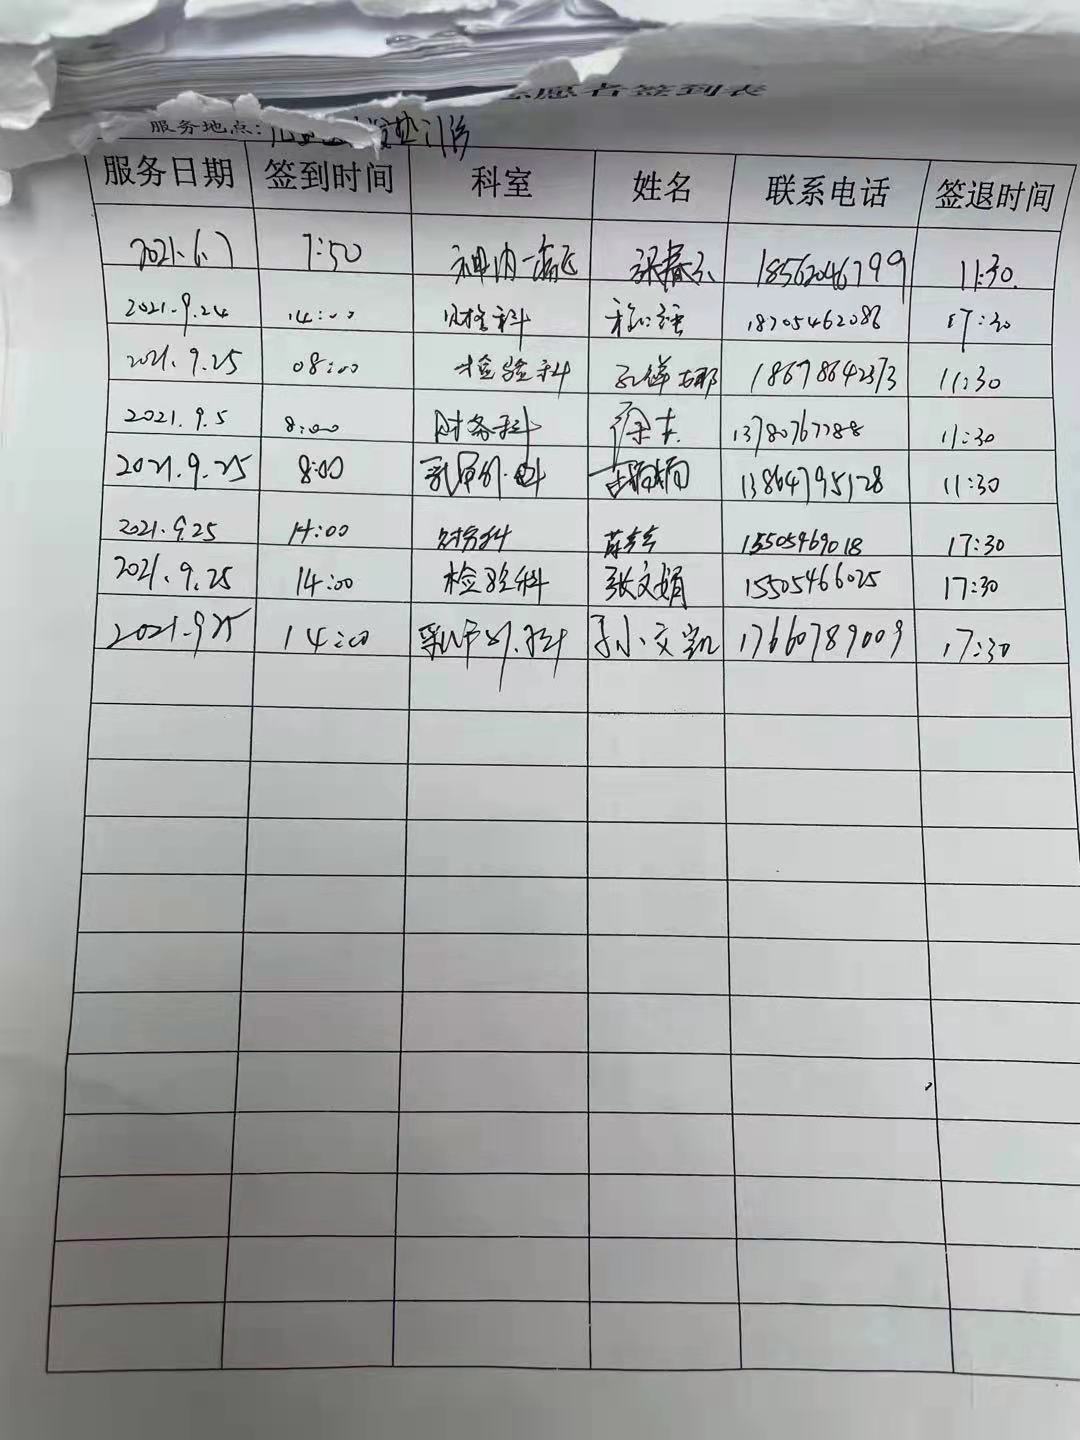 志愿者签到表
服务地点:
服务日期 签到时间 科室 姓名 联系电话 签退时间
2021.6.7 7:50 神内一 18562046799 11:30.
2021.9.24 14:00 科 18705462086 17:30
2021.9.25 08:00 检验科 18678642313 11:30
2021.9.5 8:00 财务科 徐 13780767788 11:30
2021.9.25 8:00 乳甲外科 13864795128 11:30
2021.9.25 14:00 财务科 15505469018 17:30
2021.9.25 14:00 检验科 张文娟 15505466025 17:30
2021.925 14:00 乳甲外科 17660789009 17:30